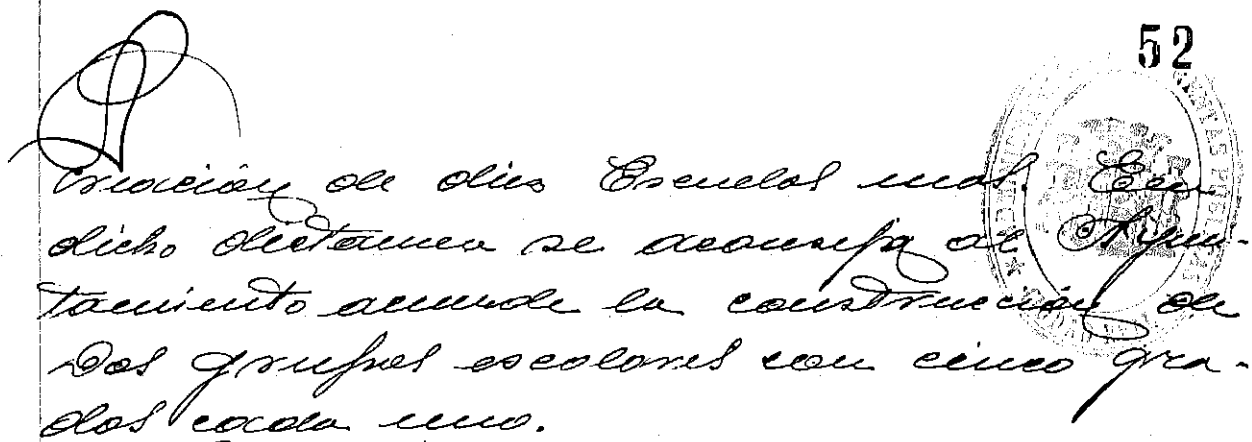 52
creación de diez Escuelas mas. En
dicho dictamen se aconseja al Ayun-
tamiento acuerde la construcción de
Dos grupos escolares con cinco gra-
dos cada uno.